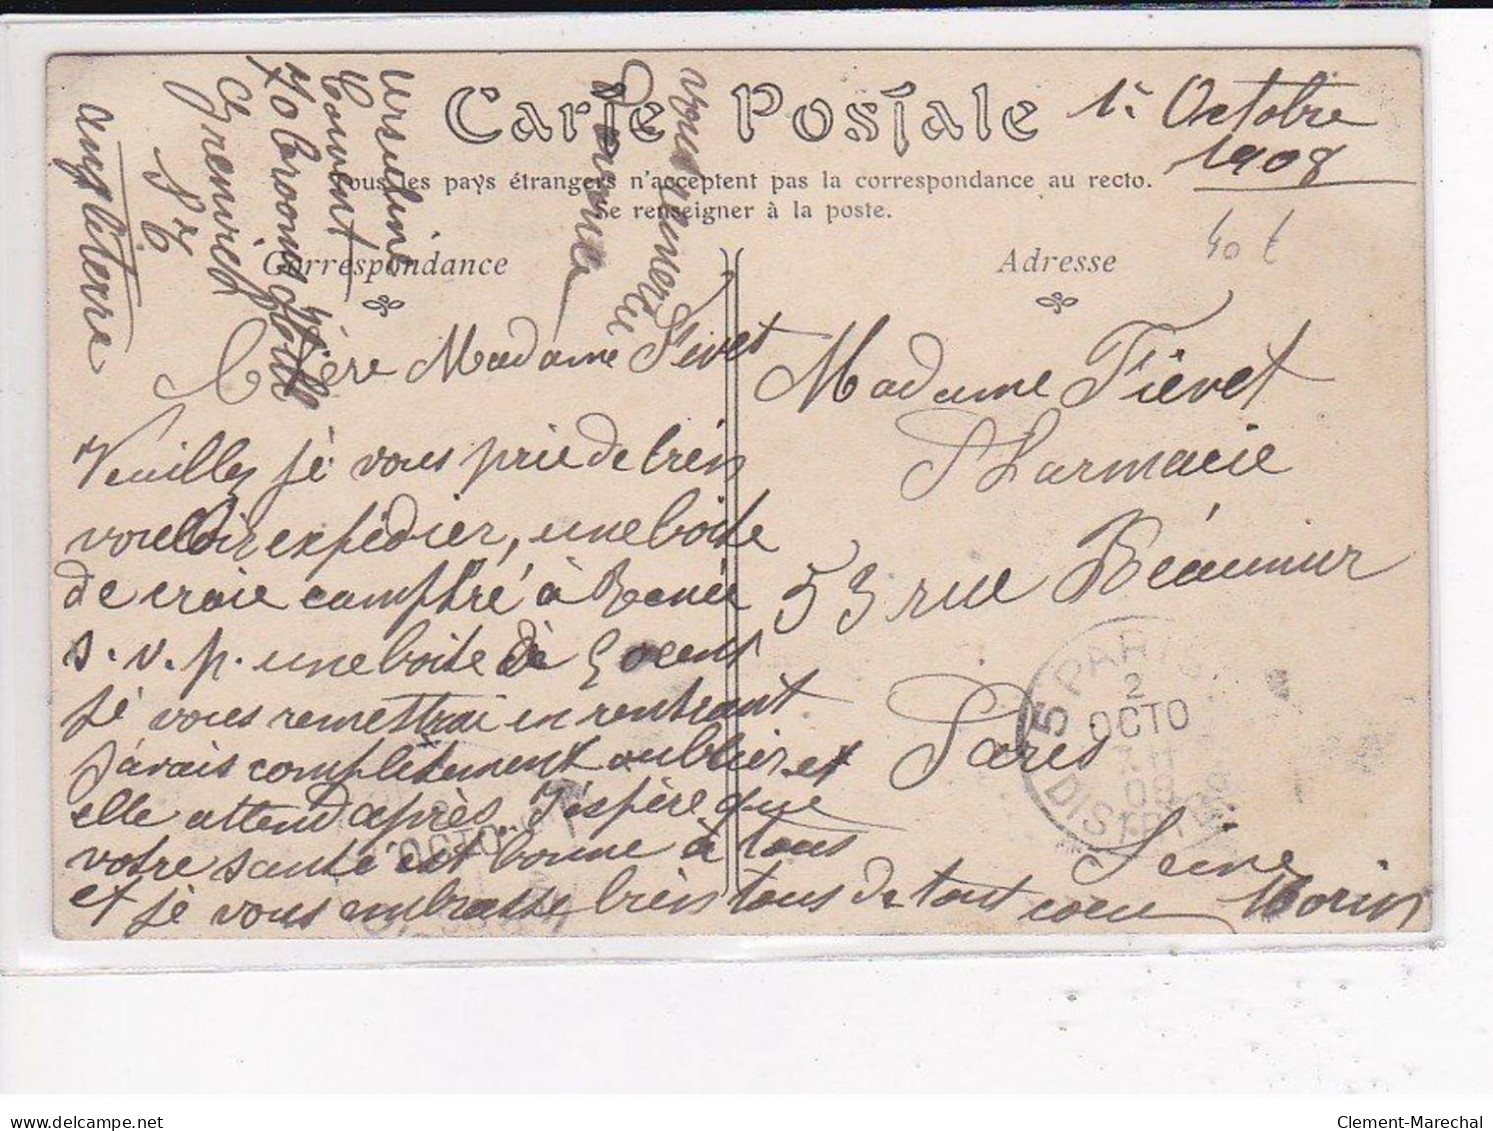 Carte Postale
Tous les pays étrangers n'acceptent pas la correspondance au recto.
Se renseigner à la poste.
Correspondance
Adresse
1r Octobre
1908
40 t
Chère Madame Fievet
Veuillez je vous prie de bien
vouloir expédier, une boite
de craie camphré à Renée
s.v.p. une boite de 50 cent
je vous remettrai en rentrant
j'avais complètement oublier et
elle attend après. J'espère que
votre santé est bonne à tous
et je vous embrasse bien tous de tout coeur Morin
Madame Fièvet
Pharmacie
53 rue Réaumur
Paris
Seine
Ursuline
Couvent
70 Crooms Hill
Greenwich
S E
Angleterre
vous remercie
Renée
5 PARIS
2
OCTO
08
DISTRIB
OCTO